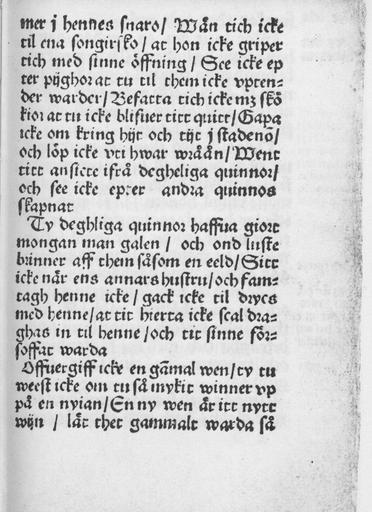 mer j hennes snaro/ Wän tich icke
til ena songirsko/ at hon icke griper
tich med sinne öffning/ See icke ep
ter pijghor at tu til them icke vpten-
der warder/ Befatta tich icke mz skö
kior at tu icke blifuer titt quitt/ Gapa
icke om kring hijt och tijt j stadenom/
och löp icke vti hwar wräån/ Went
titt ansicte ifrå degheliga quinnor/
och see icke epter andra quinnos
skapnat
Ty deghliga quinnor haffua giort
mongan man galen/ och ond luste
brinner aff them såsom en eeld/ Sitt
icke när ens annars hustru/ och fam-
tagh henne icke/ gack icke til drycs
med henne/ at tit hierta icke scal dra-
ghas in til henne/ och tit sinne för-
soffat warda
Offuergiff icke en gāmal wen/ ty tu
weest icke om tu så mykit winner vp
på en nyian/ En ny wen är itt nytt
wijn/ låt thet gammalt warda så